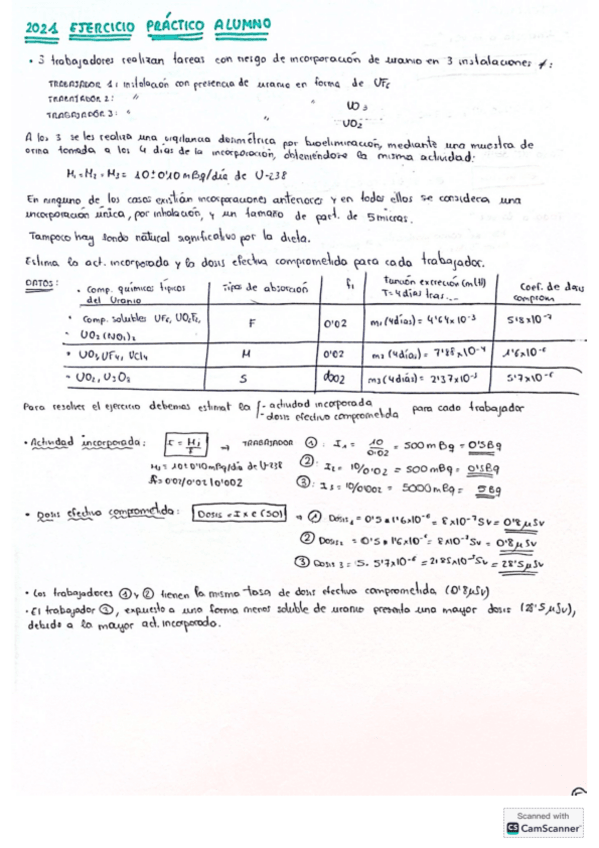 2021 EJERCICIO PRÁCTICO ALUMNO
• 3 trabajadores realizan tareas con riesgo de incorporación de uranio en 3 instalaciones ≠:
TRABAJADOR 1: instalación con presencia de uranio en forma de UF6
TRABAJADOR 2: " " UO3
TRABAJADOR 3: " " UO2
A los 3 se les realiza una vigilancia dosimétrica por bioeliminación, mediante una muestra de
orina tomada a los 4 días de la incorporación, obteniéndose la misma actividad:
M1 = M2 = M3 = 10±0'10 mBq/día de U-238
En ninguno de los casos existían incorporaciones anteriores y en todos ellos se considera una
incorporación única, por inhalación, y un tamaño de part. de 5 micras.
Tampoco hay fondo natural significativo por la dieta.
Estima la act. incorporada y la dosis efectiva comprometida para cada trabajador.
DATOS:
• Comp. químicos típicos del Uranio | Tipos de absorción | f1 | Función excreción (m(t)) T=4 días tras... | Coef. de dosis comprom
• Comp. solubles UF6, UO2F2, - UO2(NO3)2 | F | 0'02 | m1 (4 días) = 4'64x10⁻³ | 5'8x10⁻⁷
• UO3, UF4, UCl4 | M | 0'02 | m2 (4 días) = 7'86x10⁻⁴ | 1'6x10⁻⁶
• UO2, U3O8 | S | 0'002 | m3 (4 días) = 2'37x10⁻⁵ | 5'7x10⁻⁶
Para resolver el ejercicio debemos estimar la - actividad incorporada - dosis efectiva comprometida para cada trabajador
• Actividad incorporada: I = Mi/f → TRABAJADOR ①: I1 = 10/0'02 = 500 mBq = 0'5Bq
Mi = 10±0'10 mBq/día de U-238 ②: I2 = 10/0'02 = 500 mBq = 0'5Bq
f1 = 0'02/0'02/0'002 ③: I3 = 10/0'002 = 5000 mBq = 5Bq
• Dosis efectiva comprometida: Dosis = I x e (50) → ① Dosis1 = 0'5 • 1'6x10⁻⁶ = 8x10⁻⁷ Sv = 0'8 µSv
② Dosis2 = 0'5 • 1'6x10⁻⁶ = 8x10⁻⁷ Sv = 0'8 µSv
③ Dosis 3 = 5 · 5'7x10⁻⁶ = 2'85x10⁻⁵ Sv = 28'5 µSv
• Los trabajadores ① y ② tienen la misma tasa de dosis efectiva comprometida (0'8 µSv)
• El trabajador ③, expuesto a una forma menos soluble de uranio presenta una mayor dosis (28'5 µSv),
debido a la mayor act. incorporada.
Scanned with
CS CamScanner